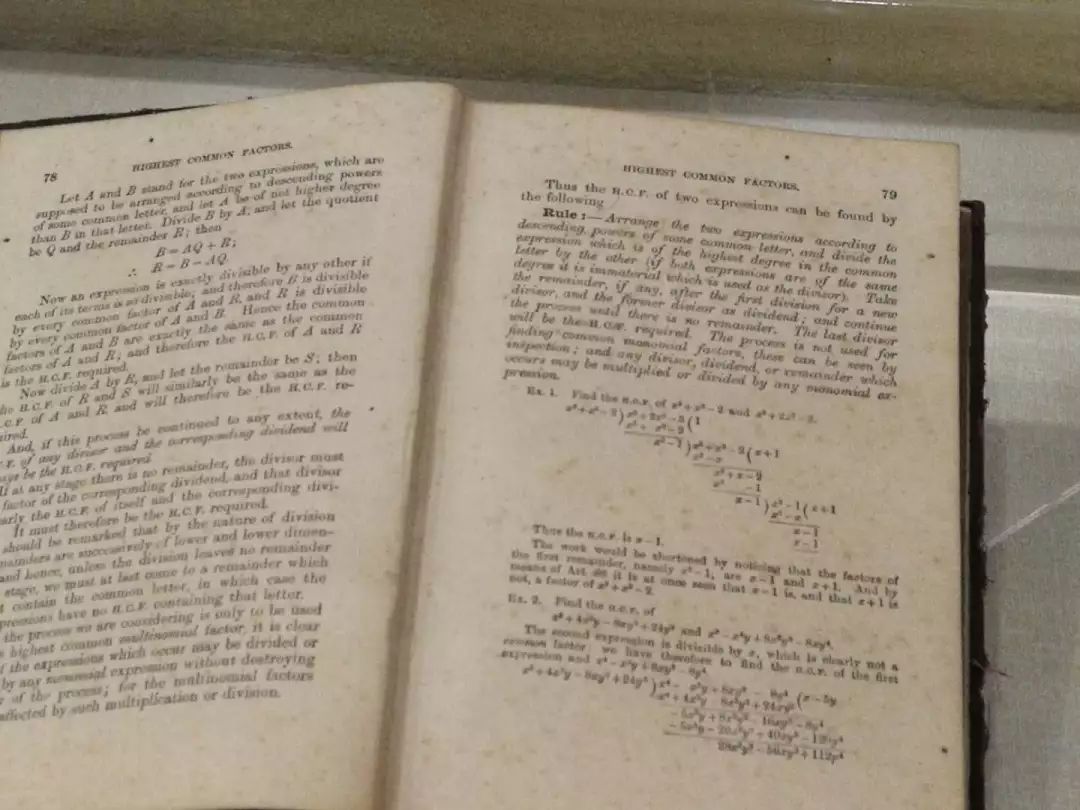 78
HIGHEST COMMON FACTORS.
Let A and B stand for the two expressions, which are
supposed to be arranged according to descending powers
of some common letter, and let A be of not higher degree
than B in that letter. Divide B by A, and let the quotient
be Q and the remainder R; then
B = AQ + R;
∴ R = B − AQ.
Now an expression is exactly divisible by any other if
each of its terms is so divisible; and therefore B is divisible
by every common factor of A and R, and R is divisible
by every common factor of A and B. Hence the common
factors of A and B are exactly the same as the common
factors of A and R; and therefore the H.C.F. of A and R
is the H.C.F. required.
Now divide A by R, and let the remainder be S; then
H.C.F. of R and S will similarly be the same as the
of A and R, and will therefore be the H.C.F. re-
And, if this process be continued to any extent, the
of any divisor and the corresponding dividend will
be the H.C.F. required.
If at any stage there is no remainder, the divisor must
factor of the corresponding dividend, and that divisor
the H.C.F. of itself and the corresponding divi-
It must therefore be the H.C.F. required.
should be remarked that by the nature of division
are successively of lower and lower dimen-
and hence, unless the division leaves no remainder
stage, we must at last come to a remainder which
contain the common letter, in which case the
have no H.C.F. containing that letter.
the process we are considering is only to be used
highest common multinomial factor, it is clear
the expressions which occur may be divided or
by any monomial expression without destroying
of the process; for the multinomial factors
affected by such multiplication or division.
HIGHEST COMMON FACTORS.
79
Thus the H.C.F. of two expressions can be found by
the following
Rule :—Arrange the two expressions according to
descending powers of some common letter, and divide the
expression which is of the highest degree in the common
letter by the other (if both expressions are of the same
degree it is immaterial which is used as the divisor). Take
the remainder, if any, after the first division for a new
divisor, and the former divisor as dividend; and continue
the process until there is no remainder. The last divisor
will be the H.C.F. required. The process is not used for
finding common monomial factors, these can be seen by
inspection; and any divisor, dividend, or remainder which
occurs may be multiplied or divided by any monomial ex-
pression.
Ex. 1. Find the H.C.F. of
Thus the H.C.F. is x − 1.
The work would be shortened by noticing that the factors of
the first remainder, namely x² − 1, are x − 1 and x + 1. And by
means of Art. it is at once seen that x − 1 is, and that x + 1 is
not, a factor of
Ex. 2. Find the H.C.F. of
The second expression is divisible by x, which is clearly not a
common factor: we have therefore to find the H.C.F. of the first
expression and